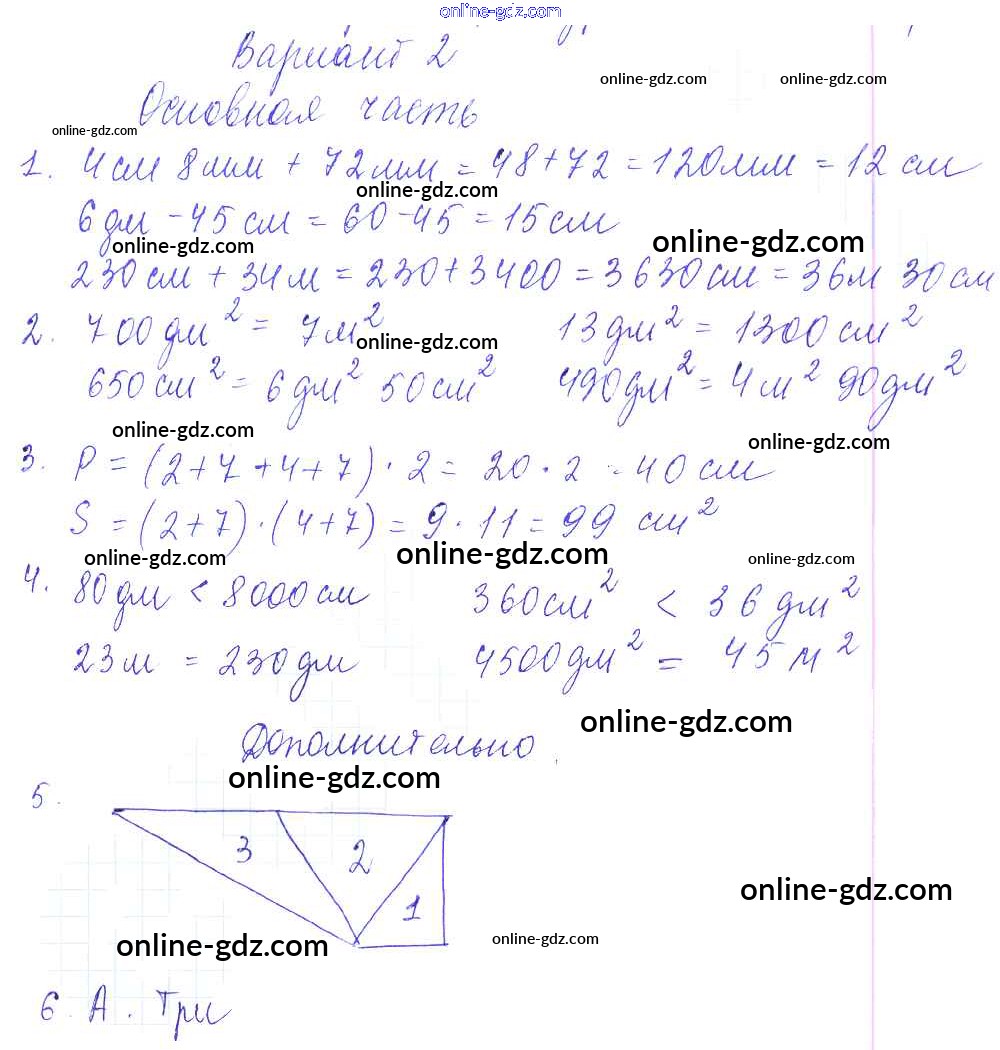 online-gdz.com
Вариант 2
online-gdz.com online-gdz.com
Основная часть
online-gdz.com
1. 4см 8мм + 72мм = 48+72 = 120мм = 12 см
online-gdz.com
6дм - 45см = 60-45 = 15см
online-gdz.com online-gdz.com
230см + 34м = 230+3400 = 3630см = 36м 30см
2. 700дм² = 7м² 13дм² = 1300см²
online-gdz.com
650см² = 6дм² 50см² 490дм² = 4м² 90дм²
online-gdz.com online-gdz.com
3. P = (2+7+4+7) · 2 = 20 · 2 = 40см
S = (2+7) · (4+7) = 9 · 11 = 99 см²
online-gdz.com online-gdz.com online-gdz.com
4. 80дм < 8000см 360см² < 36дм²
23м = 230дм 4500дм² = 45м²
online-gdz.com
Дополнительно
online-gdz.com
5.
3 2
1
online-gdz.com
online-gdz.com online-gdz.com
6. А. Три